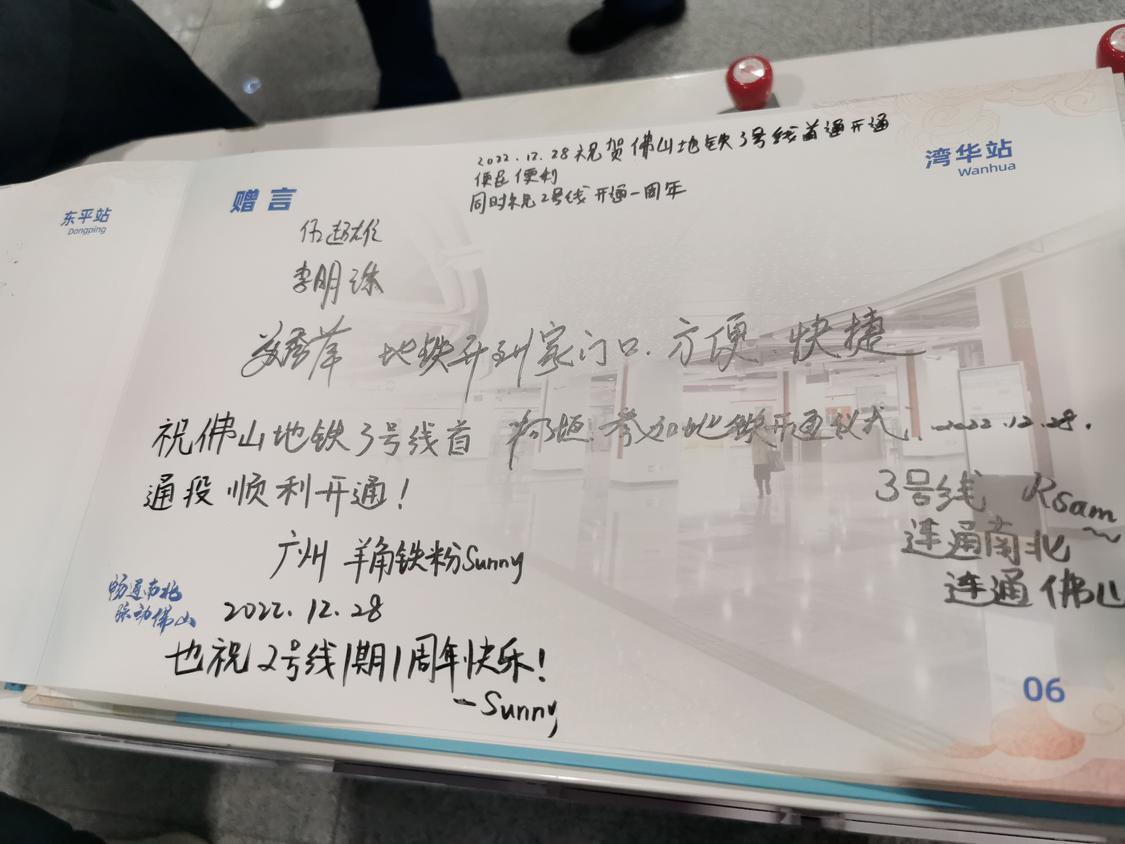 东平站
Dongping
赠言
2022.12.28祝贺佛山地铁3号线首通开通
便民便利
同时祝2号线开通一周年
湾华站
Wanhua
李明
地铁开到家门口.方便、快捷
祝佛山地铁3号线首
通段顺利开通!
参加地铁开通仪式.2022.12.28.
3号线 Rsam
连通南北
连通佛山
广州 羊角铁粉Sunny
畅通南北
脉动佛山
2022.12.28
也祝2号线1期1周年快乐!
-Sunny
06